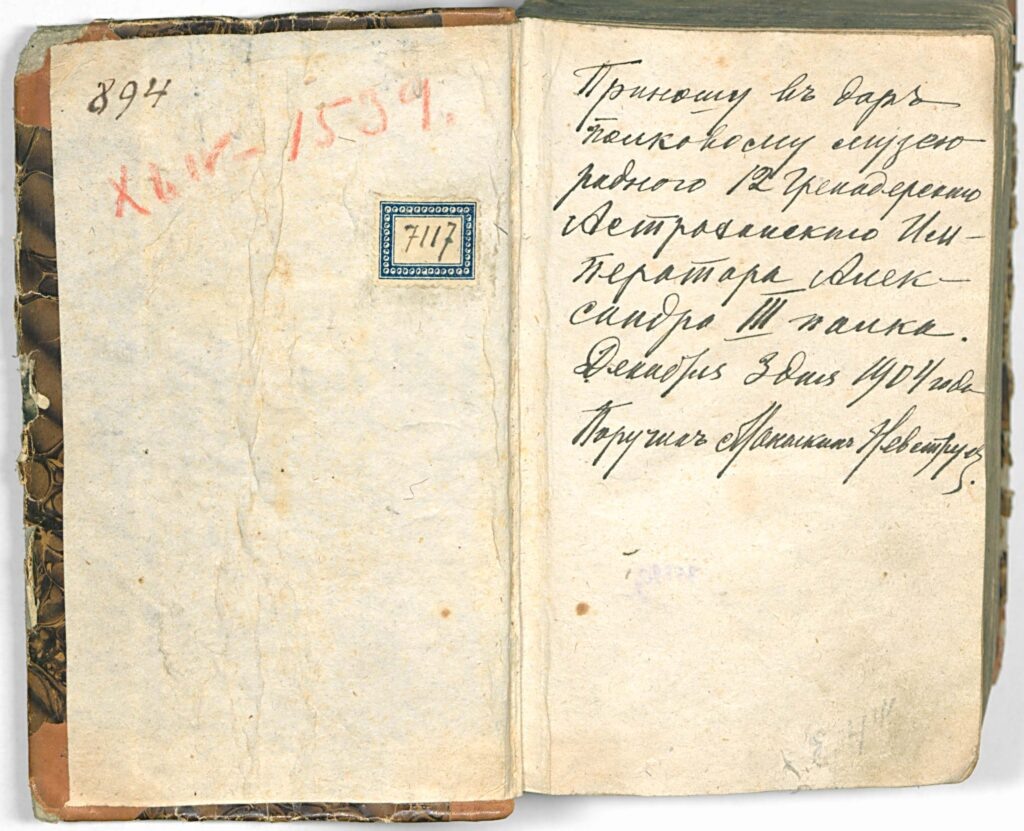 894
1539.
7117
Приношу въ даръ
полковому музею
родного 12 Гренадерскаго
Астраханскаго Им-
ператора Алек-
сандра III полка.
Декабря 3 дня 1904 года
Поручикъ